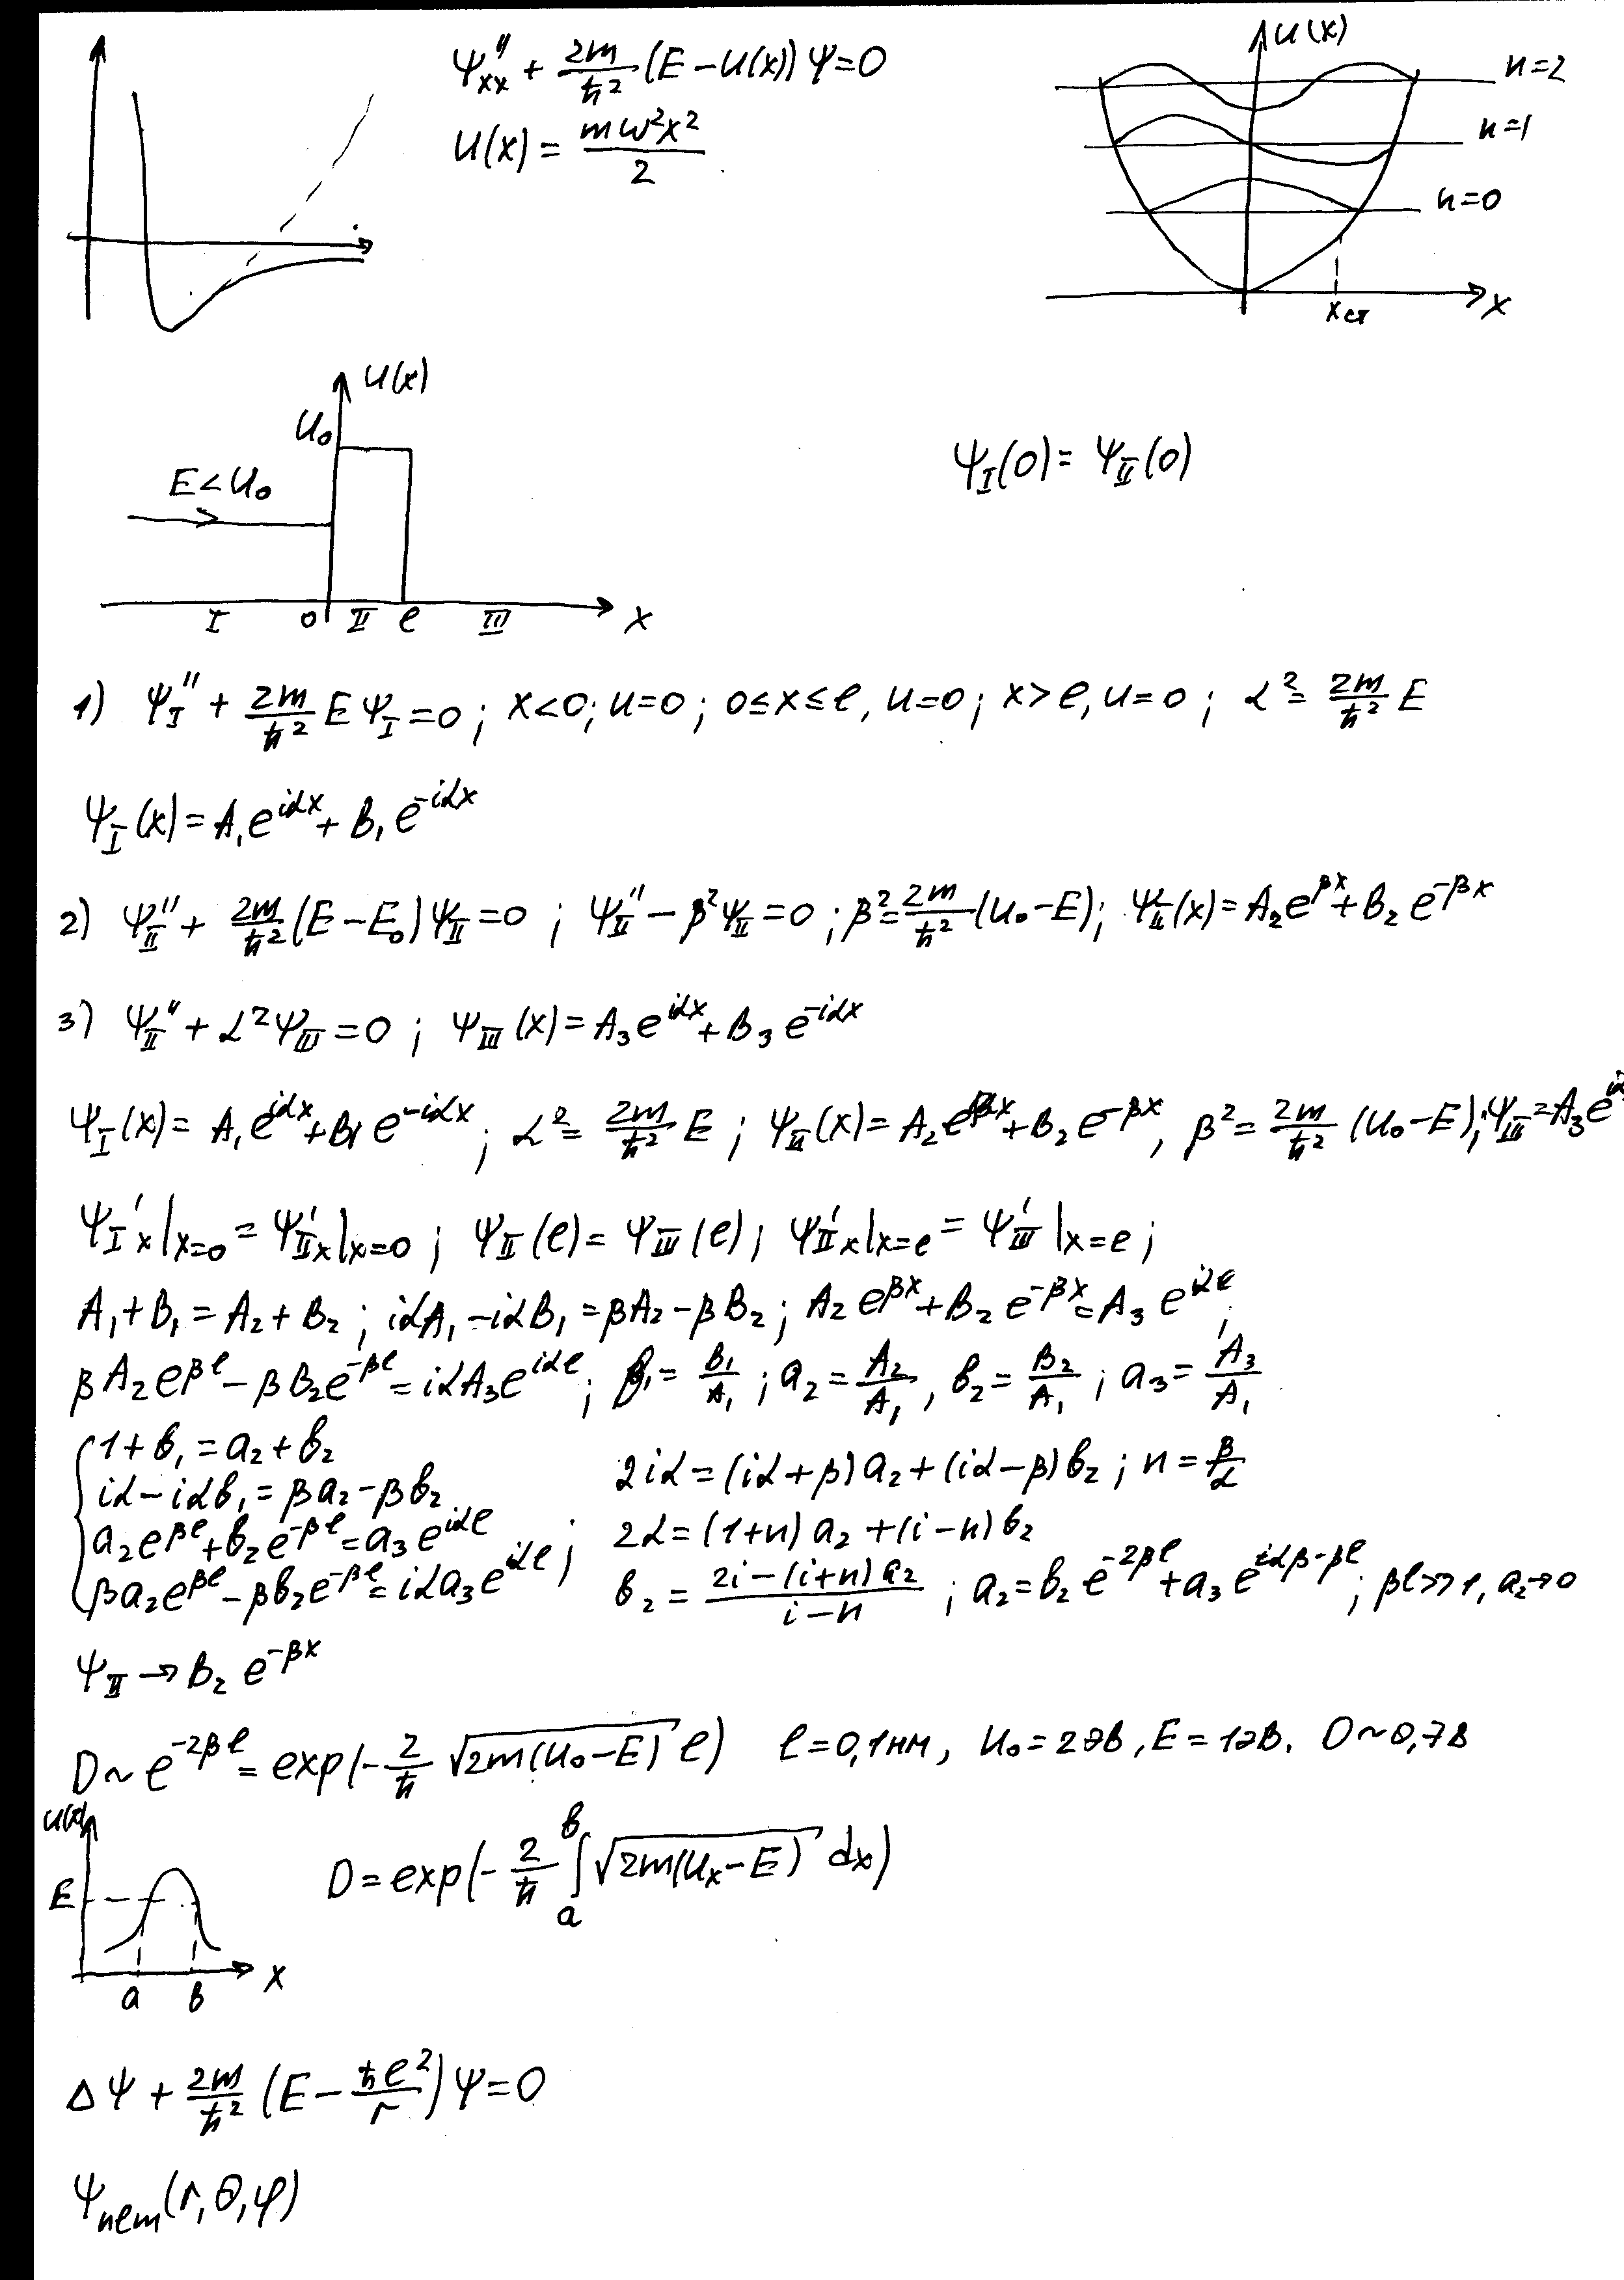 Ψ''xx + 2m/ħ² (E − U(x)) Ψ = 0
U(x) = mω²x²/2
U(x)
n=2
n=1
n=0
xст
x
U(x)
U₀
E < U₀
I 0 II ℓ III x
Ψ_I(0) = Ψ_II(0)
1) Ψ_I'' + 2m/ħ² E Ψ_I = 0 ; x<0; U=0 ; 0≤x≤ℓ, U=0 ; x>ℓ, U=0 ; α² = 2m/ħ² E
Ψ_I(x) = A₁e^{iαx} + B₁e^{-iαx}
2) Ψ_II'' + 2m/ħ² (E − E₀) Ψ_II = 0 ; Ψ_II'' − β²Ψ_II = 0 ; β² = 2m/ħ² (U₀−E) ; Ψ_II(x) = A₂e^{βx} + B₂e^{-βx}
3) Ψ_II'' + α²Ψ_III = 0 ; Ψ_III(x) = A₃e^{iαx} + B₃e^{-iαx}
Ψ_I(x) = A₁e^{iαx} + B₁e^{-iαx} ; α² = 2m/ħ² E ; Ψ_II(x) = A₂e^{βx} + B₂e^{-βx}, β² = 2m/ħ² (U₀−E) ; Ψ_III = A₃e^{iα
Ψ_I'x|x=0 = Ψ_II'x|x=0 ; Ψ_II(ℓ) = Ψ_III(ℓ) ; Ψ_II'x|x=ℓ = Ψ_III'|x=ℓ ;
A₁ + B₁ = A₂ + B₂ ; iαA₁ − iαB₁ = βA₂ − βB₂ ; A₂e^{βx} + B₂e^{-βx} = A₃e^{iαℓ} ;
βA₂e^{βℓ} − βB₂e^{-βℓ} = iαA₃e^{iαℓ} ; в₁ = B₁/A₁ ; a₂ = A₂/A₁ , в₂ = B₂/A₁ ; a₃ = A₃/A₁
1 + в₁ = a₂ + в₂
iα − iαв₁ = βa₂ − βв₂
a₂e^{βℓ} + в₂e^{-βℓ} = a₃e^{iαℓ}
βa₂e^{βℓ} − βв₂e^{-βℓ} = iαa₃e^{iαℓ} ;
2iα = (iα+β)a₂ + (iα−β)в₂ ; n = β/α
2α = (1+n)a₂ + (i−n)в₂
в₂ = (2i − (i+n)a₂)/(i−n) ; a₂ = в₂e^{-2βℓ} + a₃e^{iαβ-βℓ} ; βℓ>>1, a₂→0
Ψ_II → B₂e^{-βx}
D ~ e^{-2βℓ} = exp(−2/ħ √(2m(U₀−E)) ℓ) ℓ=0,1нм, U₀=2эВ, E=1эВ. D~0,78
U(x)
E
a в x
D = exp(−2/ħ ∫ₐᵇ √(2m(Uₓ−E)) dx)
ΔΨ + 2m/ħ² (E − ħe²/r) Ψ = 0
Ψnℓm(r,θ,φ)